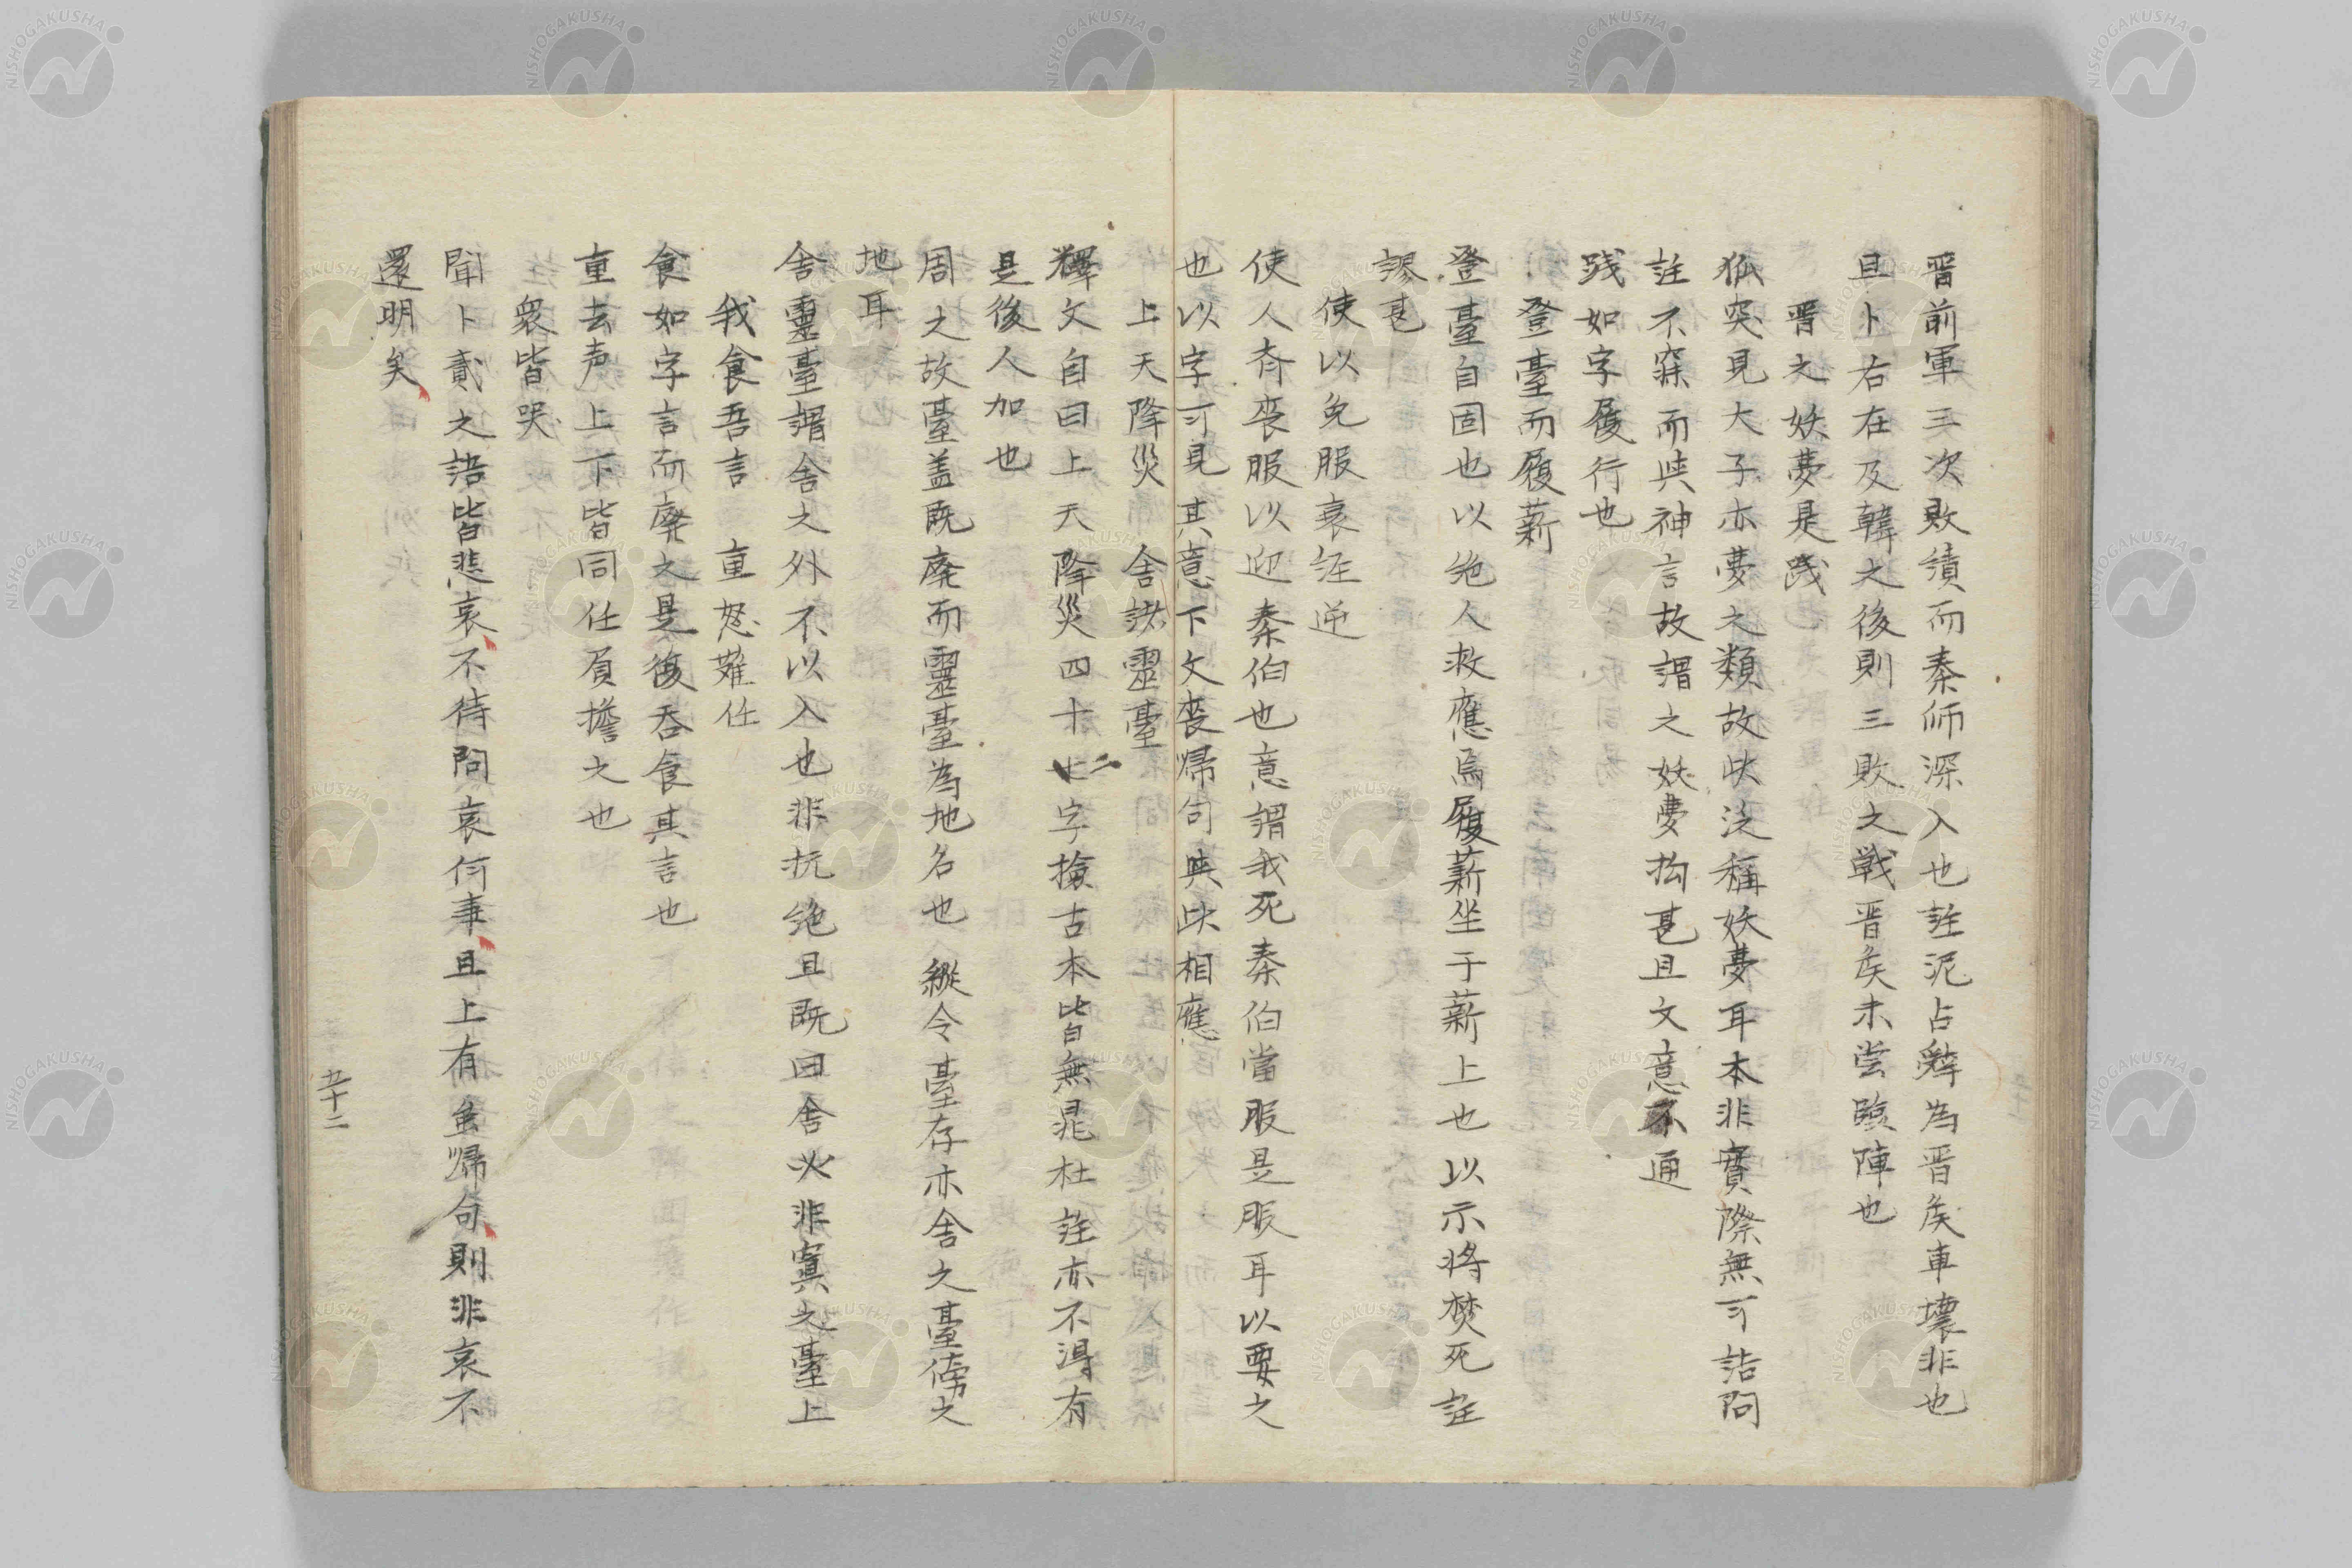 晋前軍三次敗績而秦師深入也註泥占辭為晋矦車壞非也
且卜右在及韓之後則三敗之戦晋矦未嘗臨陣也
晋之妖夢是践
狐突見大子亦夢之類故此泛稱妖夢耳本非實際無可詰問
註不寐而與神言故謂之妖夢拘甚且文意不通
践如字履行也
登臺而履薪
登臺自固也以絶人救應焉履薪坐于薪上也以示将焚死註
謬甚
使以免服衰絰逆
使人斉喪服以迎秦伯也意謂我死秦伯當服是服耳以要之
也以字可見其意下文喪帰句與此相應
上天降災 舎諸靈臺
釋文自曰上天降災四十二字撿古本皆無尾杜註亦不得有
是後人加也
周之故臺盖既廃而靈臺為地名也縦令臺存亦舎之臺傍之
地耳
舎靈臺謂舎之外不以入也非抗絶且既曰舎火非寘之臺上
我食吾言 重怒難任
食如字言而廃之是復呑食其言也
重去声上下皆同任負擔之也
衆皆哭
聞卜貳之語皆悲哀不待問哀何事且上有重帰句則非哀不
還明矣
五十二
NISHOGAKUSHA